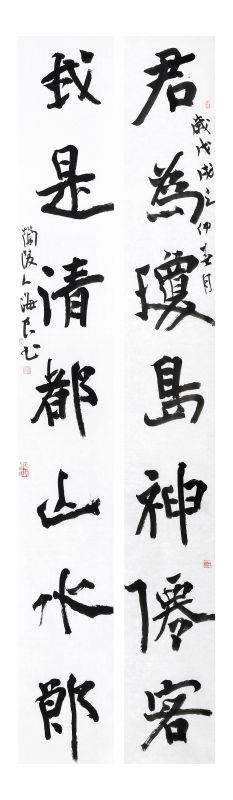 君為瓊島神僊客
歲戊戌之仲春月
我是清都山水郎
蘭陵人海良书